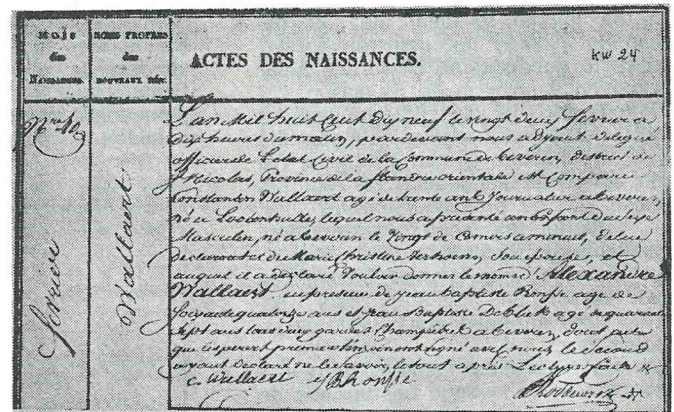 MOIS
des
NAISSANCES.
NOMS PROPRES
des
NOUVEAUX NÉS.
ACTES DES NAISSANCES.
kw 24
N.ro 40
fevrier
Wallaert
L'an Mil huit Cent dix neuf le vingt deux fevrier a
dix heures du matin, par devant nous adjoint délégué
officier de L'etat Civil de la Commune de Beveren, district de
St Nicolas, Province de la flandre orientale est Comparu
Constantin Wallaert agé de trente ans Journalier a beveren,
né a lequel nous a presenté un enfant du sexe
Masculin, né a beveren le vingt de Ce mois a minuit, de lui
declarant et de Marie Christine son epouse, et
auquel il a declaré vouloir donner le nom de Alexandre
Wallaert. en presence de jean baptiste Ronsse agé de
soixante quatorze ans et jean Baptiste De Block agé de quarante
sept ans tous deux gardes Champêtres a beveren, dont acte
que le pere et premier temoin ont signé avec nous, le second
ayant declaré ne le savoir, le tout a près lecture faite
C. Wallaert